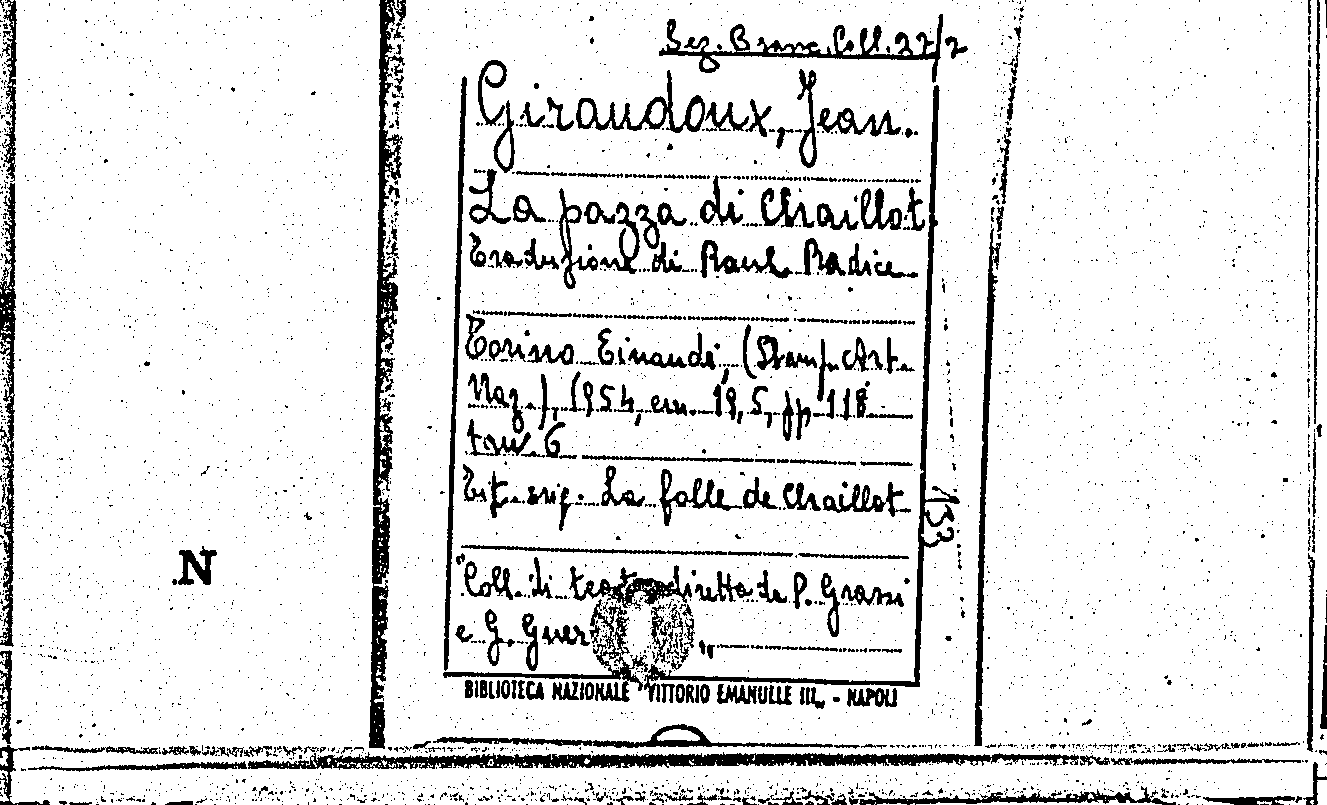 Sez. Branc. Coll. 22/2
Giraudoux, Jean.
La pazza di Chaillot.
Traduzione di Raul Radice
Torino Einaudi, (Stamp. Art.
Naz.), 1954, cm. 19,5, pp. 118
tav. 6
Tit. orig. La folle de Chaillot
133
"Coll. di teatro diretta da P. Grassi
e G. Guer "
N
BIBLIOTECA NAZIONALE "VITTORIO EMANUELE III„ - NAPOLI